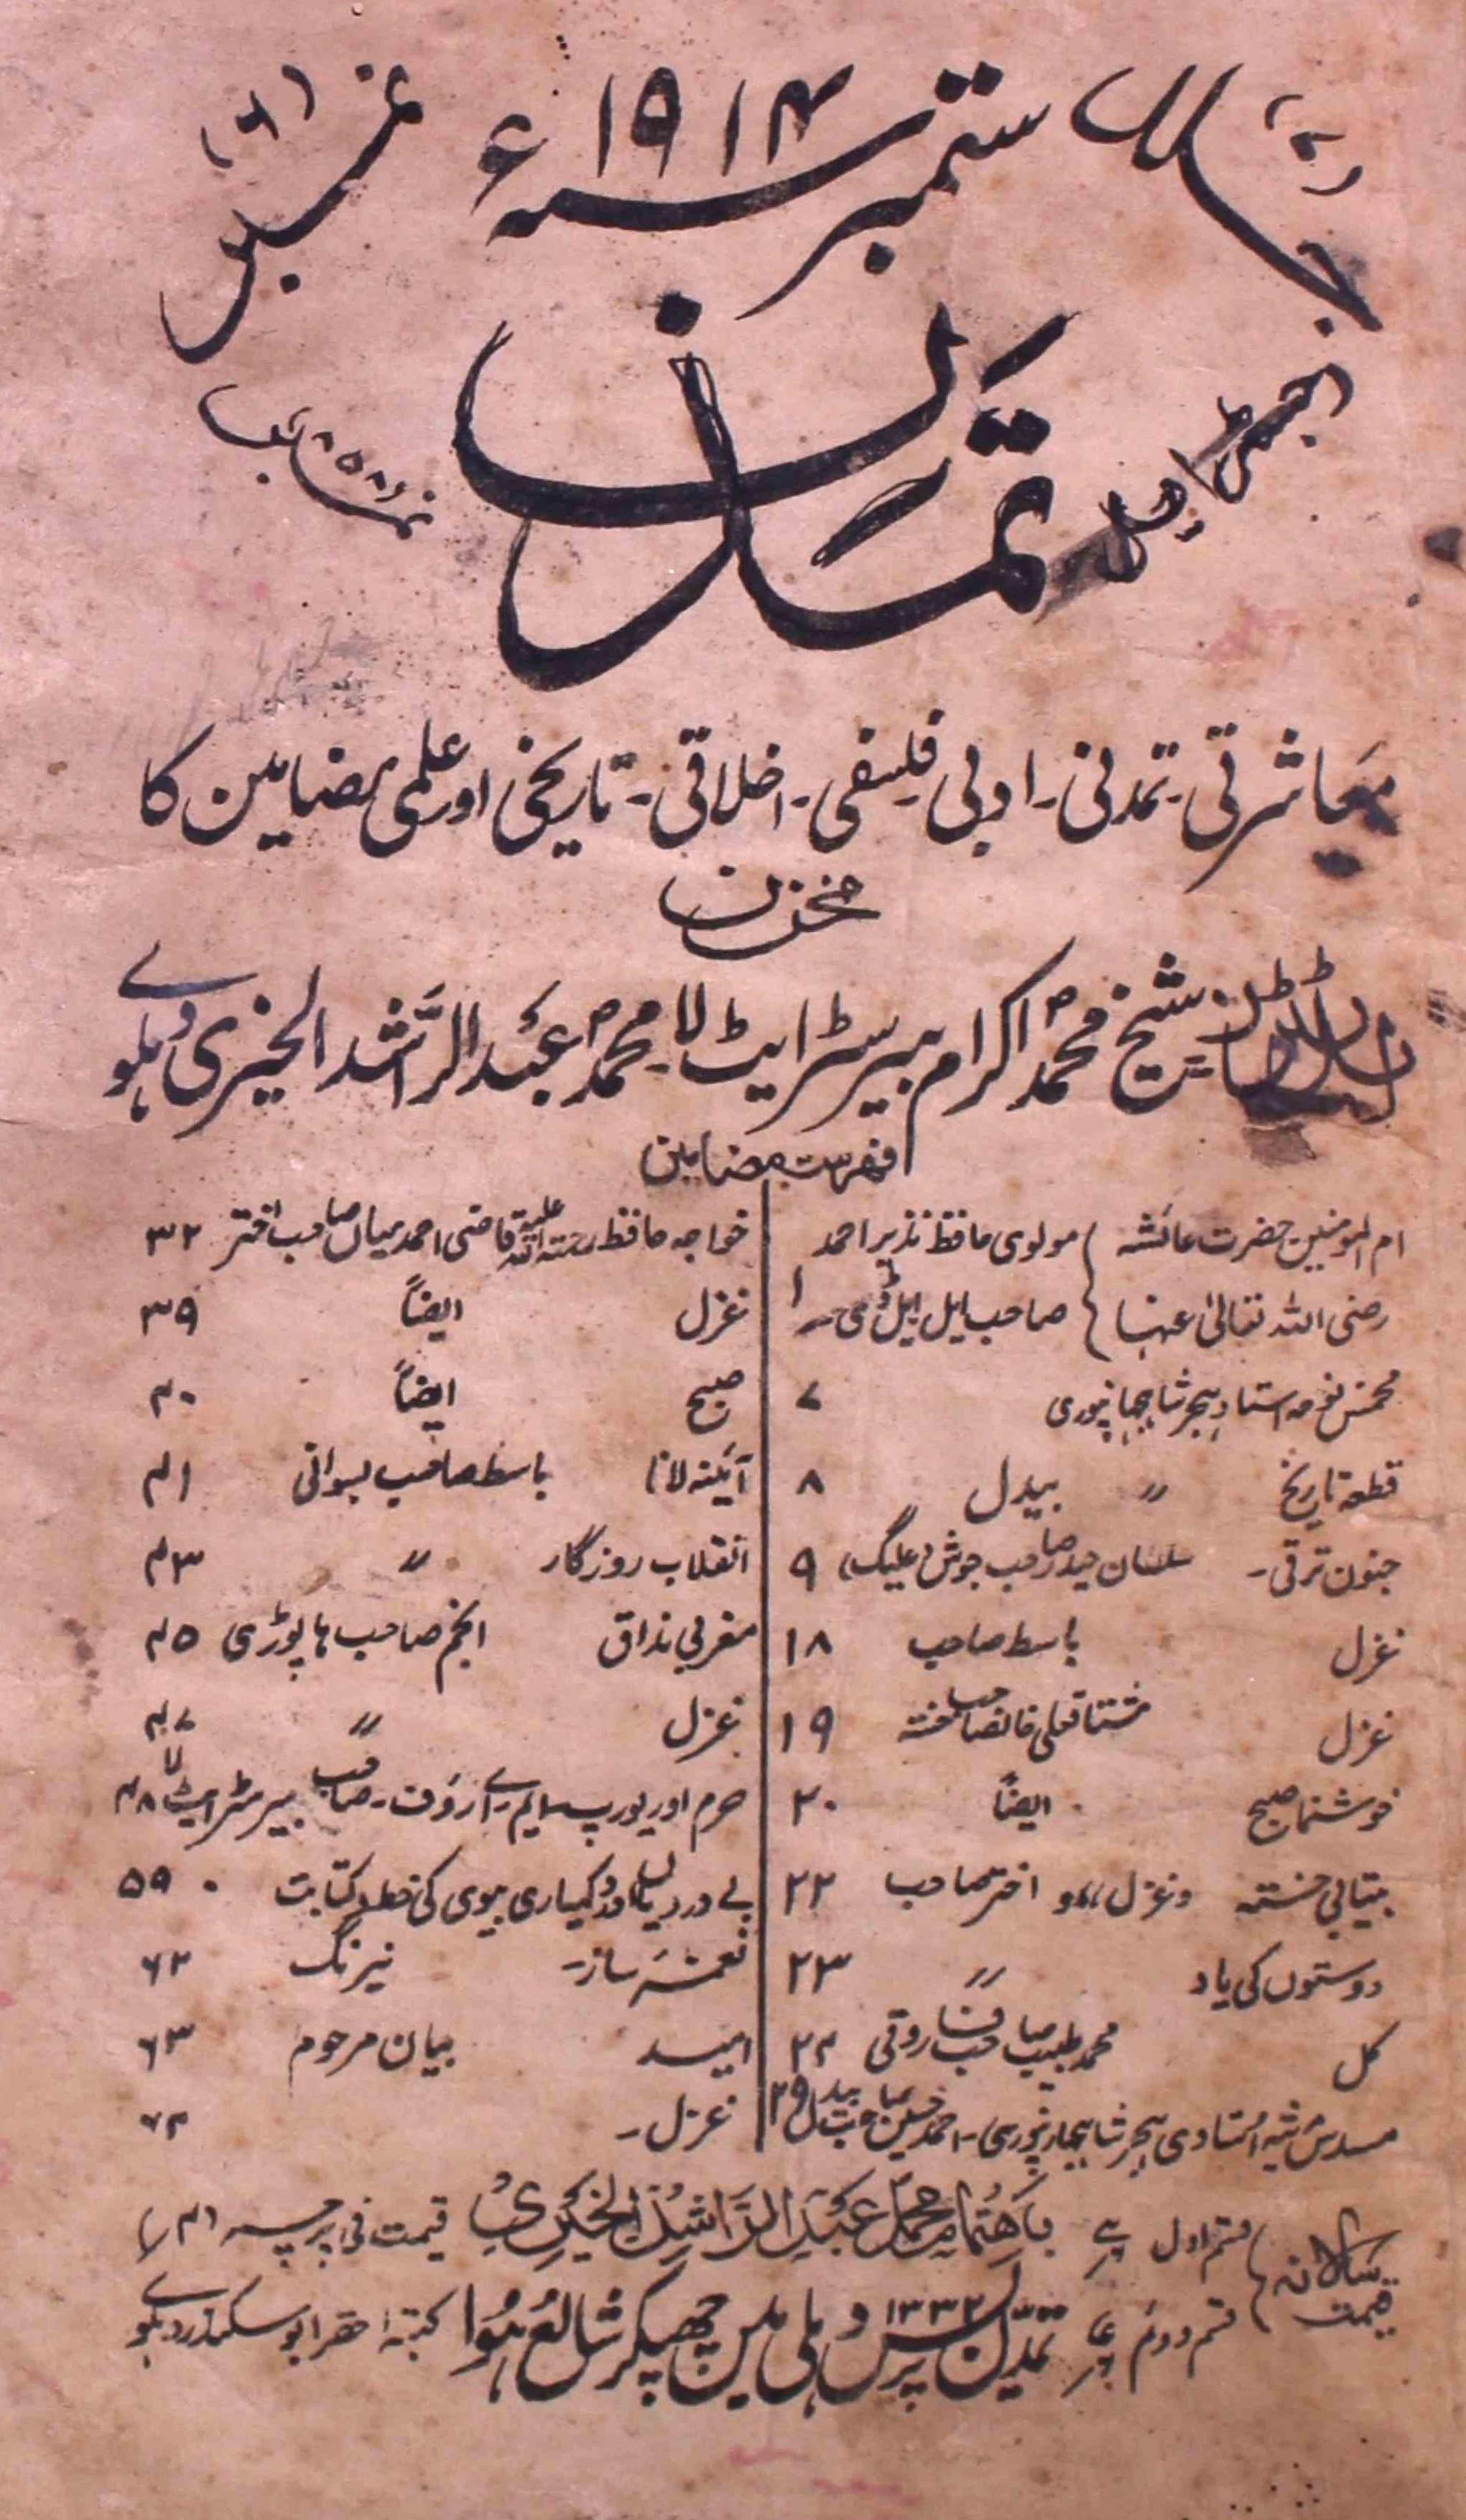 جلد (۷)
ستمبر سنہ ۱۹۱۴ ء
نمبر (۶)
رجسٹرڈ ایل
نمبر ۸۵۸
تمدن
معاشرتی۔ تمدنی۔ ادبی فلسفی۔ اخلاقی۔ تاریخی اور علمی مضامین کا
مخزن
شیخ محمد اکرام بیرسٹر ایٹ لا۔ محمد عبد الراشد الخیری دہلوے
فہرست مضامین
ام المومنین حضرت عائشہ مولوی حافظ نذیر احمد
رضی اللہ تعالیٰ عنہا صاحب ایل ایل ڈی۔ ۱
مخمس نوحہ استاد ہجر شاہجہانپوری ۷
قطعہ تاریخ " بیدل ۸
جنون ترقی۔ سلطان حیدر صاحب جوش (علیگ) ۹
غزل باسط صاحب ۱۸
غزل مشتاق علی خانصاحب خستہ ۱۹
خوشنما صبح ایضاً ۲۰
بیتابی خستہ و غزل اختر صاحب ۲۲
دوستوں کی یاد " ۲۳
کل محمد طبیب صاحب فاروقی ۲۴
مسدس مرثیہ استادی ہجر شاہجہانپوری۔ احمد حسین صاحب بیدل ۲۹
خواجہ حافظ رحمتہ اللہ علیہ قاضی احمد میاں صاحب اختر ۳۲
غزل ایضاً ۳۹
صبح ایضاً ۴۰
آئینہ لانا باسط صاحب بسوانی ۴۱
انقلاب روزگار " ۴۳
مغربی مذاق انجم صاحب ہاپوڑی ۴۵
غزل " ۴۷
حرم اور یورپ ایم۔ اے رؤف۔ صاحب بیرسٹر ایٹ لا ۴۸
بے درد میاں اور دکھیاری بیوی کی خط و کتابت ۵۹
نغمۂ ساز۔ نیرنگ ۶۲
امید بیان مرحوم ۶۳
غزل۔ ۶۴
سالانہ قیمت قسم اول
باہتمام محمد عبد الراشد الخیری
قیمت فی پرچہ (۴ر)
قسم دوئم
تمدن پریس دہلی میں چھپکر شائع ہوا
۱۳۳۲
کتبہ احقر